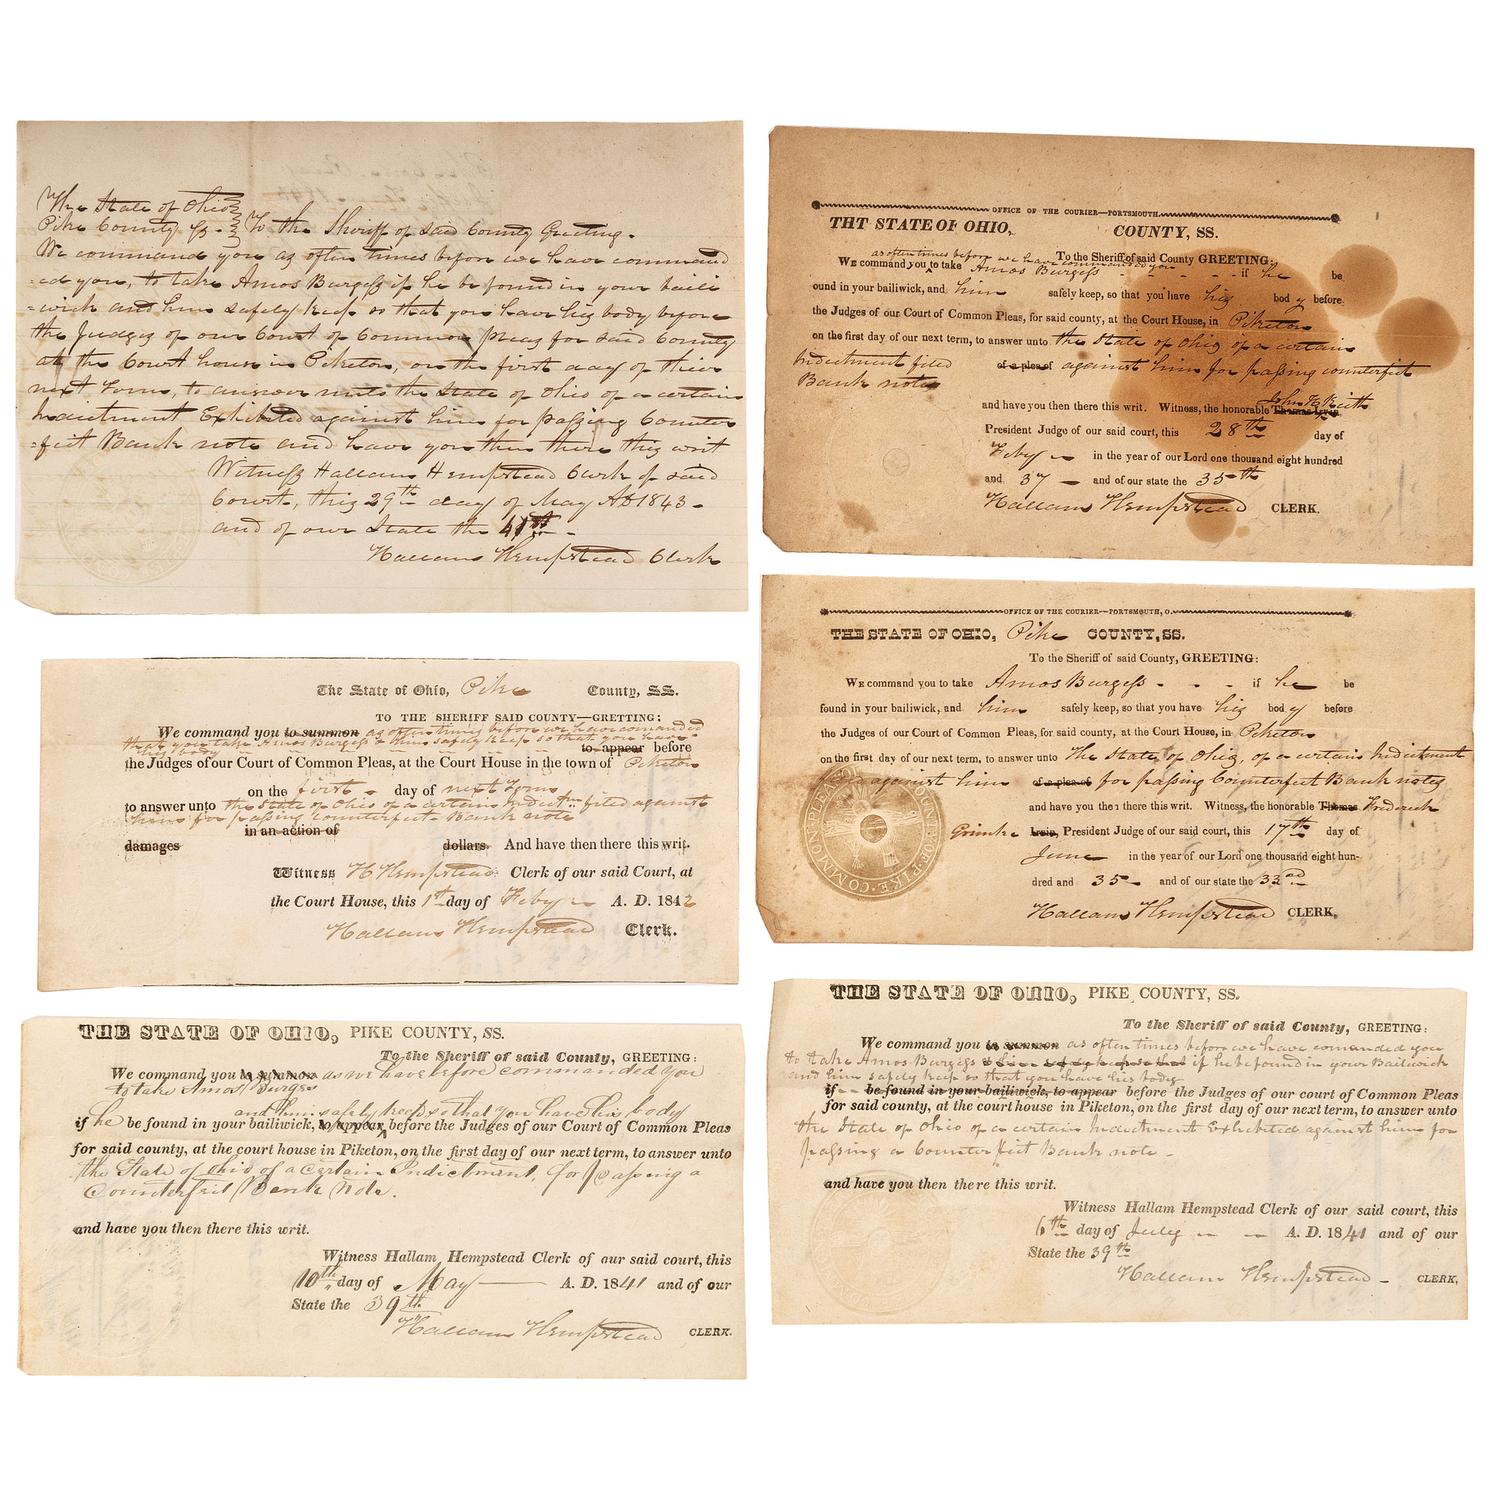 The State of Ohio
Pike County ss. To the Sheriff of said County Greeting.
We command you as often times before we have command
=ed you, to take Amos Burgess if he be found in your baili
=wick and him safely keep so that you have his body before
the Judges of our Court of Common Pleas for said County
at the Court house in Piketon, on the first day of their
next Term, to answer unto the State of Ohio of a certain
Indictment Exhibited against him for passing Counter
=feit Bank note and have you then there this writ
Witness Hallam Hempstead Clerk of said
Court, this 29th day of May AD 1843-
and of our State the 41st-
Hallam Hempstead Clerk
The State of Ohio, Pike County, SS.
TO THE SHERIFF SAID COUNTY—GRETTING:
We command you to summon as often times before we have comanded
that you take Amos Burgess & him safely keep so that you have
his body to appear before
the Judges of our Court of Common Pleas, at the Court House in the town of Piketon
on the first day of next Term
to answer unto the State of Ohio of a certain Indictm filed against
him for passing counterfeit Bank note
in an action of
damages dollars. And have then there this writ.
Witness H Hempstead Clerk of our said Court, at
the Court House, this 1st day of Feby A. D. 1842
Hallam Hempstead Clerk.
THE STATE OF OHIO, PIKE COUNTY, SS.
To the Sheriff of said County, GREETING:
We command you to summon as we have before commanded you
to take Amos Burges
and him safely keep so that you have his body
if he be found in your bailiwick, to appear before the Judges of our Court of Common Pleas
for said county, at the court house in Piketon, on the first day of our next term, to answer unto
the State of Ohio of a certain Indictment, for passing a
Counterfeit Bank Note.
and have you then there this writ.
Witness Hallam Hempstead Clerk of our said court, this
10th day of May A. D. 1841 and of our
State the 39th
Hallam Hempstead CLERK.
OFFICE OF THE COURIER—PORTSMOUTH.
THT STATE OF OHIO, COUNTY, SS.
To the Sheriff of said County GREETING:
as often times before we have commanded you
WE command you to take Amos Burgess - - - - if he be
ound in your bailiwick, and him safely keep, so that you have his body before
the Judges of our Court of Common Pleas, for said county, at the Court House, in Piketon
on the first day of our next term, to answer unto the State of Ohio of a certain
Indictment filed of a plea of against him for passing counterfeit
Bank notes
John H Keith
and have you then there this writ. Witness, the honorable Thomas Irvin,
President Judge of our said court, this 28th day of
Feby in the year of our Lord one thousand eight hundred
and 37 and of our state the 35th
Hallam Hempstead CLERK.
OFFICE OF THE COURIER—PORTSMOUTH, O.
THE STATE OF OHIO, Pike COUNTY, SS.
To the Sheriff of said County, GREETING:
WE command you to take Amos Burgess - - - if he be
found in your bailiwick, and him safely keep, so that you have his body before
the Judges of our Court of Common Pleas, for said county, at the Court House, in Piketon
on the first day of our next term, to answer unto The State of Ohio, of a certain Indictment
against him of a plea of for passing Counterfeit Bank notes
and have you the there this writ. Witness, the honorable Thomas Frederick
Grimke Irvin, President Judge of our said court, this 17th day of
June in the year of our Lord one thousand eight hun-
dred and 35 and of our state the 33rd
Hallam Hempstead CLERK,
COMMON PLEAS OF PIKE COUNTY
THE STATE OF OHIO, PIKE COUNTY, SS.
To the Sheriff of said County, GREETING:
We command you to summon as often times before we have comanded you
to take Amos Burgess & him safely keep so that if he be found in your Bailiwick
and him safely keep so that you have his body
if - - be found in your bailiwick, to appear before the Judges of our court of Common Pleas
for said county, at the court house in Piketon, on the first day of our next term, to answer unto
the State of Ohio of a certain Indictment Exhibited against him for
passing a Counterfeit Bank note -
and have you then there this writ.
Witness Hallam Hempstead Clerk of our said court, this
6th day of July A. D. 1841 and of our
State the 39th
Hallam Hempstead - CLERK,